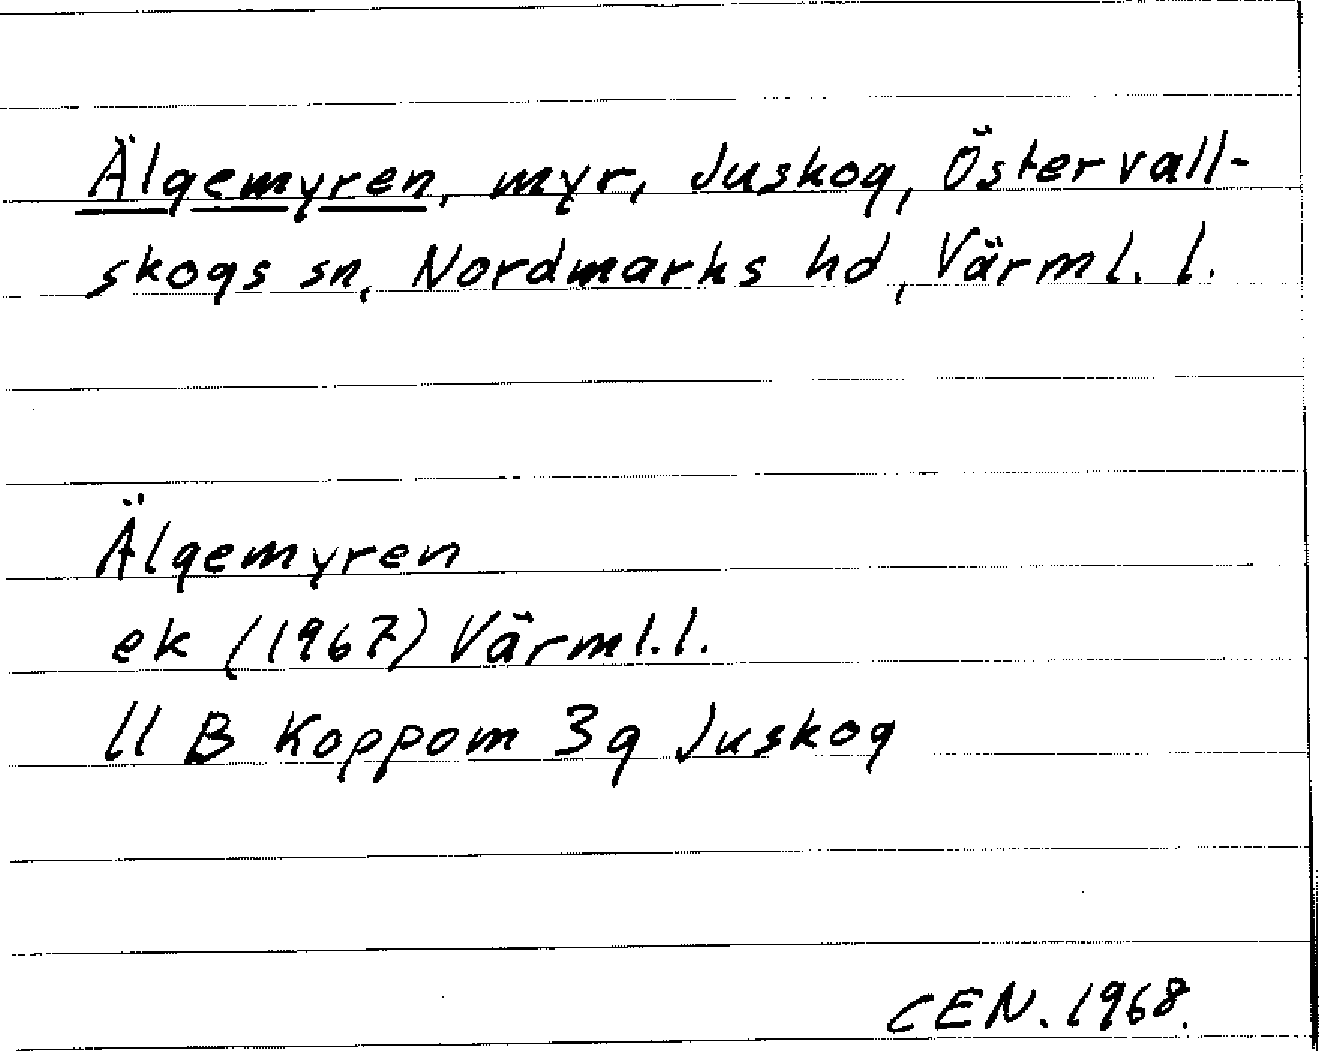 Älgemyren, myr, Juskog, Östervall-
skogs sn, Nordmarks hd, Värml. l.
Älgemyren
ek (1967) Värml.l.
11 B Koppom 3g Juskog
CEN. 1968.